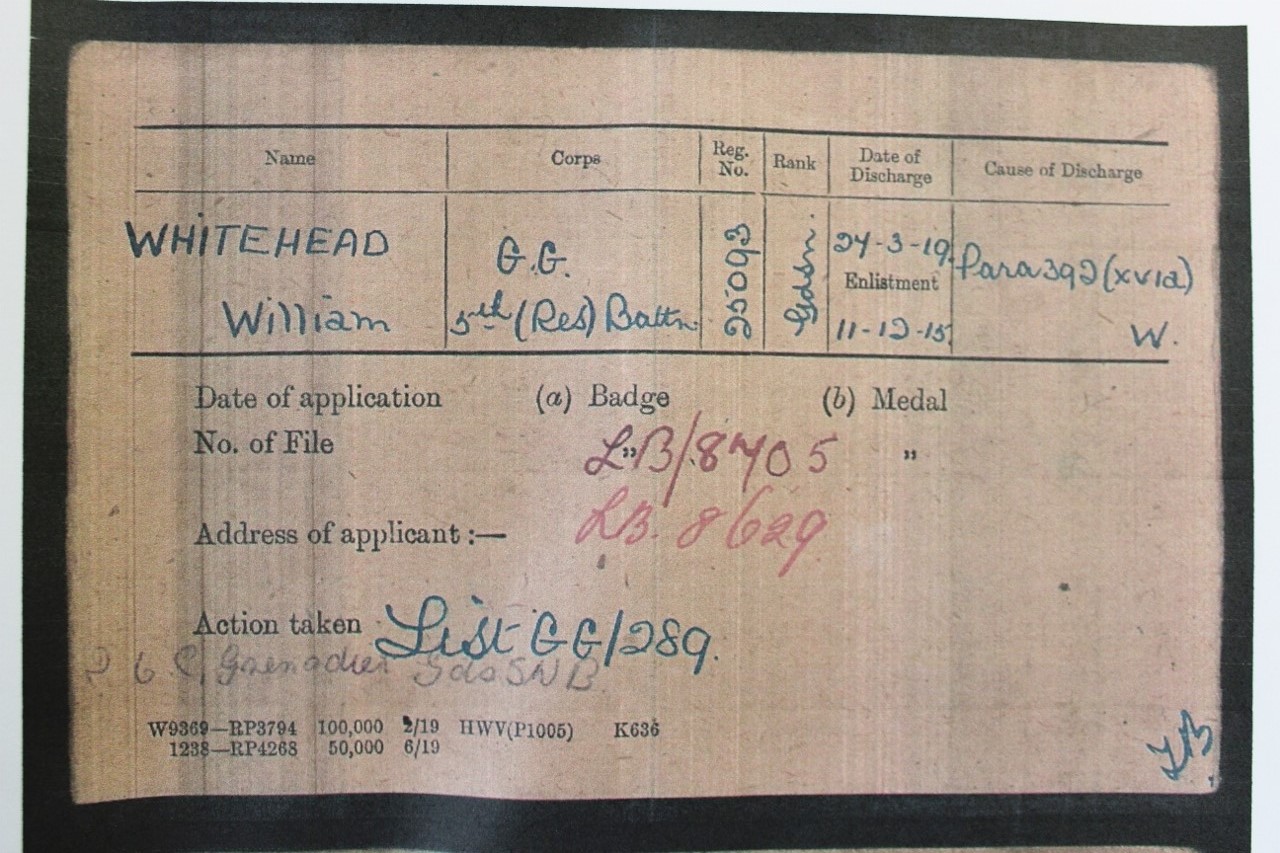 Name Corps Reg. No. Rank Date of Discharge Cause of Discharge
WHITEHEAD G.G. 25093 Gdsn. 24-3-19. Para 392 (xvia)
Enlistment
William 5th (Res) Battn. 11-12-15. W.
Date of application (a) Badge (b) Medal
No. of File " LB/8705 "
Address of applicant :— LB. 8629
Action taken List GG/289.
Grenadier Gds SNB
W9369—RP3794 100,000 2/19 HWV(P1005) K636
1238—RP4268 50,000 6/19